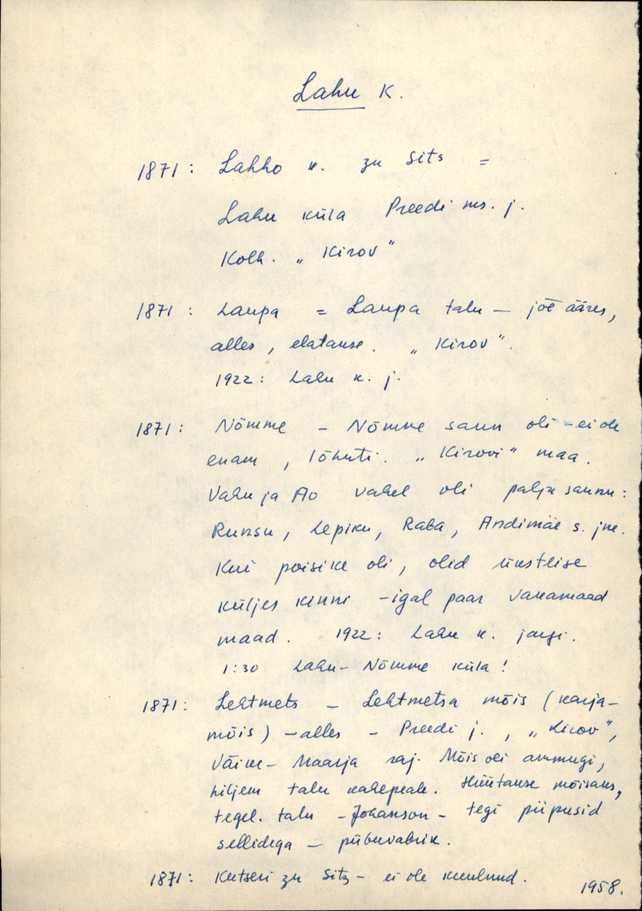 Lahu K.
1871: Lahho k. zu Sits =
Lahu küla Preedi ms. j.
Kolh. „Kirov"
1871: Laupa = Laupa talu – jõe ääres,
alles, elatakse. „Kirov".
1922: Lahu k. j.
1871: Nõmme – Nõmme saun oli – ei ole
enam, lõhuti. „Kirovi" maa.
Vahu ja Ao vahel oli palju saunu:
Runsu, Lepiku, Raba, Andimäe s. jne.
Kui poisike oli, olid üksteise
küljes kinni – igal paar vakamaad
maad. 1922: Lahu k. järgi.
1:30 Lahu-Nõmme küla!
1871: Lehtmets – Lehtmetsa mõis (karja-
mõis) – alles – Preedi j., „Kirov",
Väike-Maarja raj. Mõis oli ammugi,
hiljem talu kahepeale. Hüütakse mõisaks,
tegel. talu – Johanson – tegi piipusid
sellidega – piibuvabrik.
1871: Kutseri zu Sitz – ei ole kuulnud.
1958.